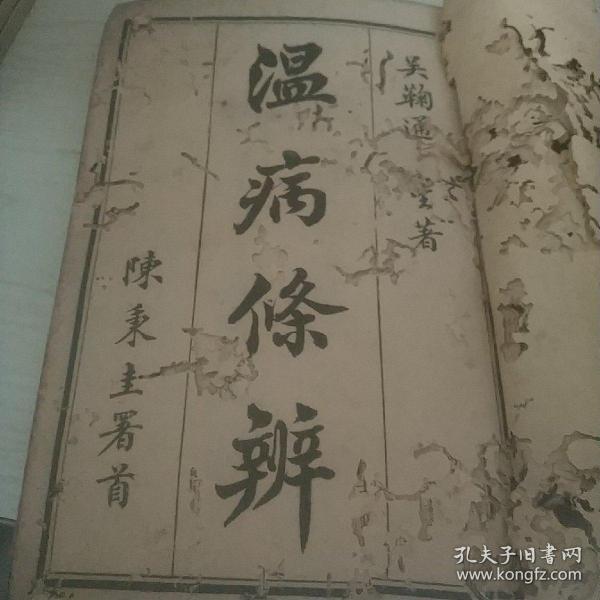 吴鞠通 著
温病條辨
陳秉圭署首
孔夫子旧書网
www.kongfz.com